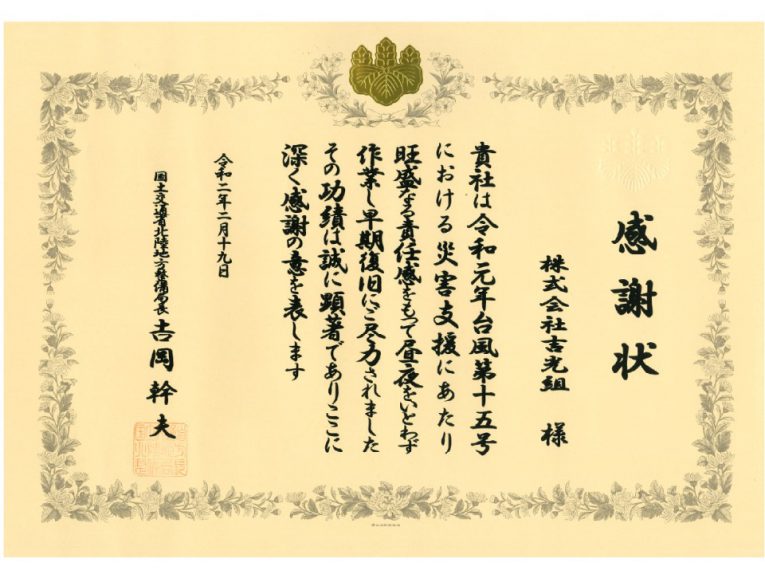 感謝状
株式会社吉光組 様
貴社は令和元年台風第十五号
における災害支援にあたり
旺盛なる責任感をもって昼夜をいとわず
作業し早期復旧にご尽力されました
その功績は誠に顕著でありここに
深く感謝の意を表します
令和二年二月十九日
国土交通省北陸地方整備局長 吉岡幹夫